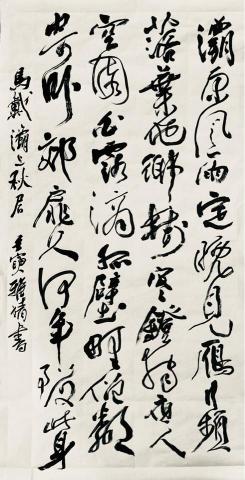 灞原風雨定晚見雁行頻
落葉他鄉樹寒鐙獨夜人
空園白露滴孤壁野僧鄰
寄卧郊扉久何年致此身
馬戴灞上秋居 壬寅雅倩書